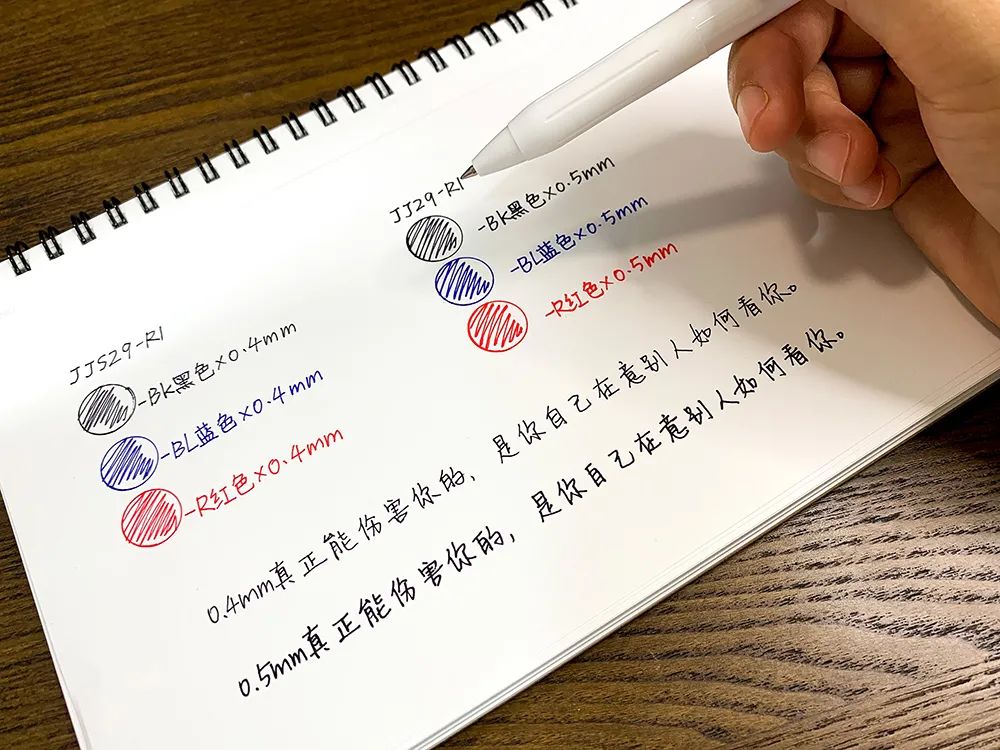 JJS29-R1
-BK黑色×0.4mm
-BL蓝色×0.4mm
-R红色×0.4mm
JJ29-R1
-BK黑色×0.5mm
-BL蓝色×0.5mm
-R红色×0.5mm
0.4mm真正能伤害你的，是你自己在意别人如何看你。
0.5mm真正能伤害你的，是你自己在意别人如何看你。